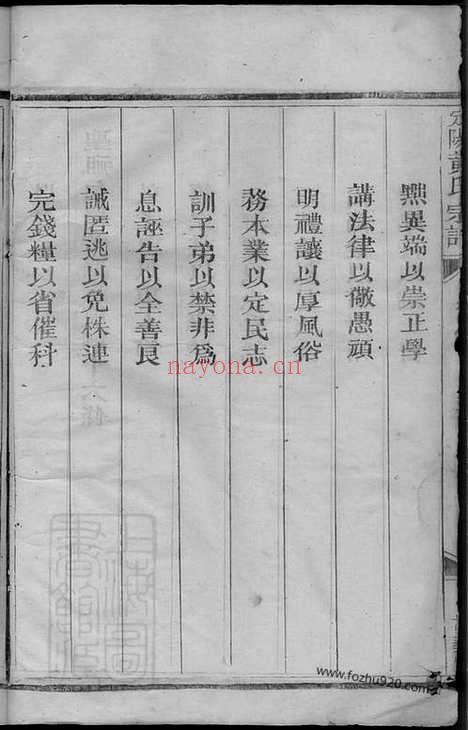 定陽黃氏宗譜
黜異端以崇正學
講法律以儆愚頑
明禮讓以厚風俗
務本業以定民志
訓子弟以禁非爲
息誣告以全善良
誡匿逃以免株連
完錢糧以省催科
nayona.cn
www.fozhu920.com